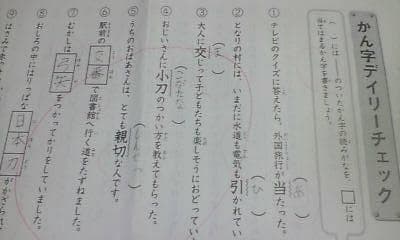 かん字デイリーチェック
（　）には――のついたかん字の読みがなを、□には
当てはまるかん字を書きましょう。
① テレビのクイズに答えたら、外国旅行が当たった。
（あ）
② となりの村には、いまだに水道も電気も引かれてい
（ひ）
③ 大人に交じって子どもたちも楽しそうにおどってい
（ま）
④ おじいさんに小刀のつかい方を教えてもらった。
（こがたな）
⑤ うちのおばあさんは、とても親切なんです。
（しんせつ）
⑥ 駅前の交番で図書館へ行く道をたずねました。
⑦ むかしは弓矢をつかってかりをしていました。
⑧ おしろの中にはりっぱな日本刀がかざられ
⑨ はさみで